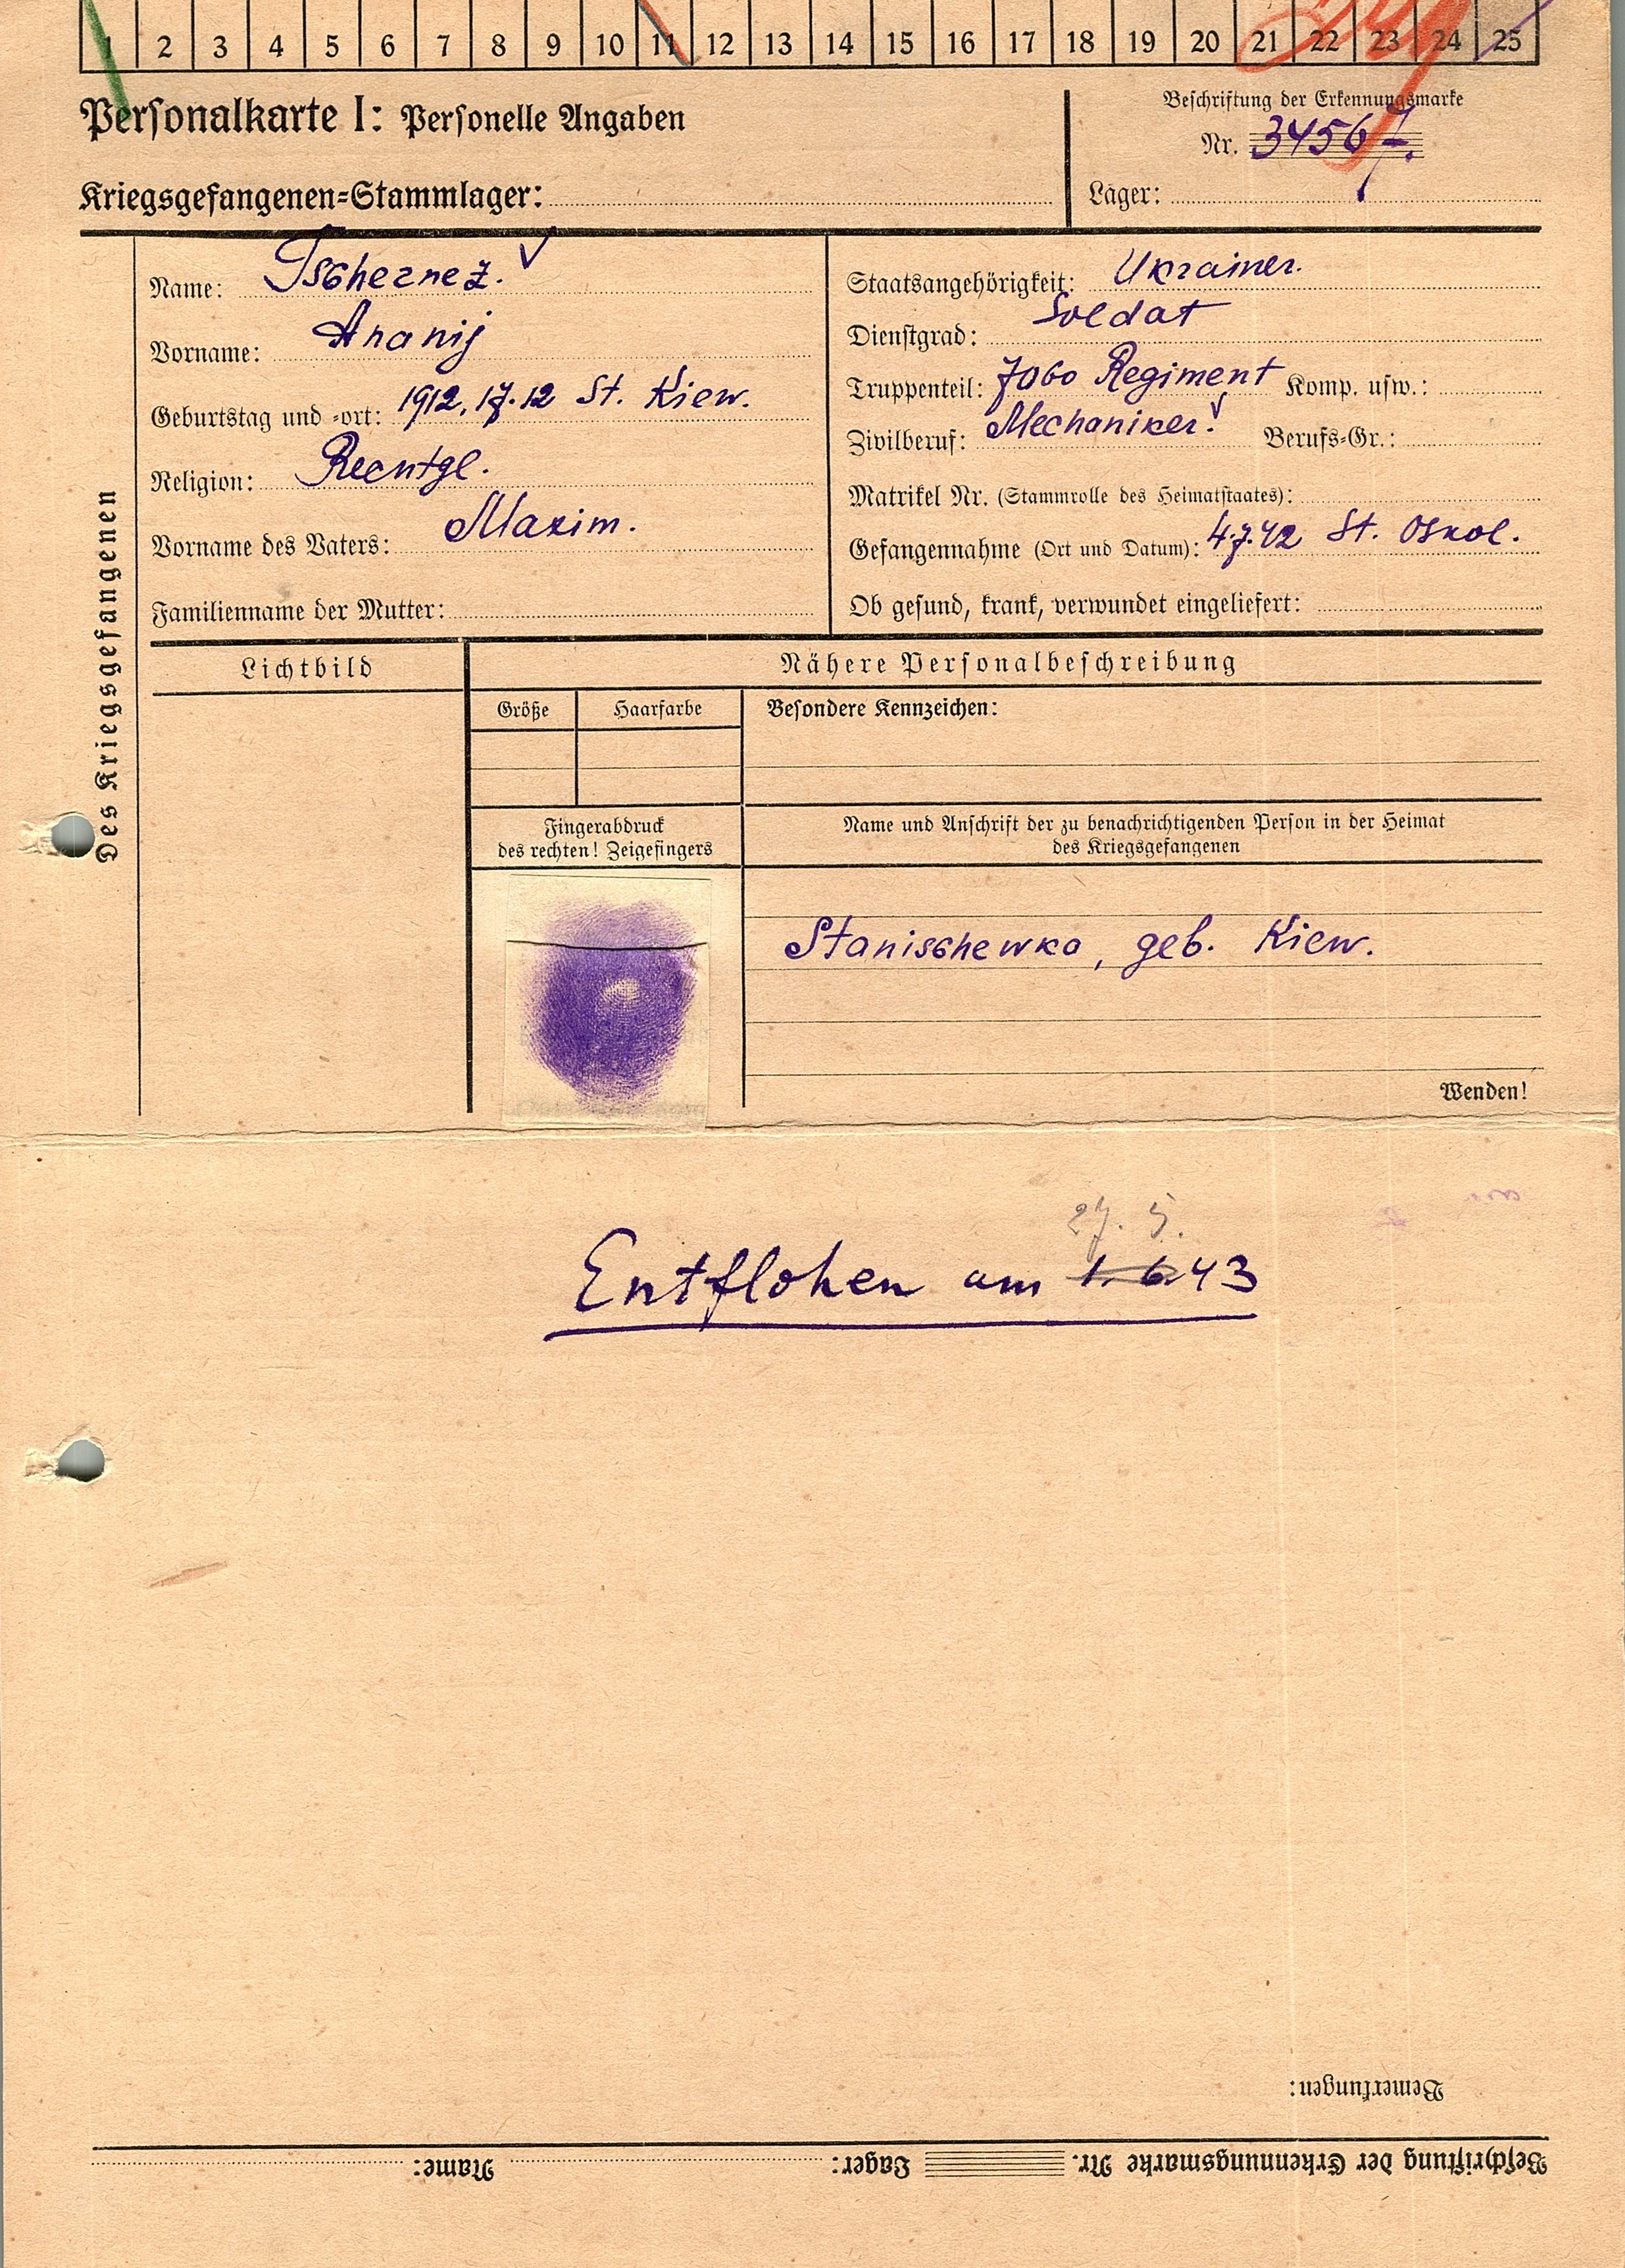 1 2 3 4 5 6 7 8 9 10 11 12 13 14 15 16 17 18 19 20 21 22 23 24 25
Personalkarte I: Personelle Angaben
Beschriftung der Erkennungsmarke
Nr. 34567.
Kriegsgefangenen=Stammlager:
Lager:
Des Kriegsgefangenen
Name: Tschernez.
Vorname: Ananij
Geburtstag und =ort: 1912, 17.12 St. Kiew.
Religion: Rechtgl.
Vorname des Vaters: Maxim.
Familienname der Mutter:
Staatsangehörigkeit: Ukrainer.
Dienstgrad: Soldat
Truppenteil: 7060 Regiment Komp. usw.:
Zivilberuf: Mechaniker. Berufs=Gr.:
Matrikel Nr. (Stammrolle des Heimatstaates):
Gefangennahme (Ort und Datum): 4.7.42 St. Oskol.
Ob gesund, krank, verwundet eingeliefert:
Lichtbild
Nähere Personalbeschreibung
Größe
Haarfarbe
Besondere Kennzeichen:
Fingerabdruck
des rechten! Zeigefingers
Name und Anschrift der zu benachrichtigenden Person in der Heimat
des Kriegsgefangenen
Stanischewka, geb. Kiew.
Wenden!
27. 5.
Entflohen am 1. 6. 43
Bemerkungen:
Beschriftung der Erkennungsmarke Nr. Lager: Name: